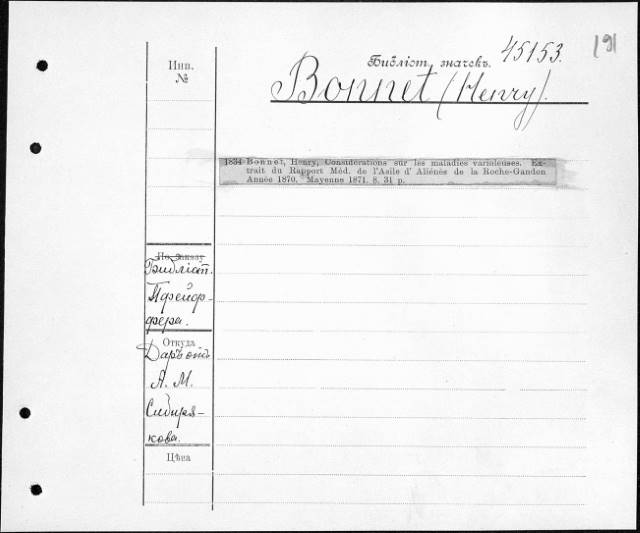 191
Библіот. значекъ. 45153.
Bonnet (Henry).
Инв.
№
1834 Bonnet, Henry, Considérations sur les maladies varioleuses. Ex-
trait du Rapport Méd. de l'Asile d' Aliénés de la Roche-Gandon
Année 1870. Mayenne 1871. 8. 31 p.
По заказу
Библіот.
Пфейф-
фера.
Откуда
Даръ отъ
А. М.
Сибиря-
кова.
Цѣна